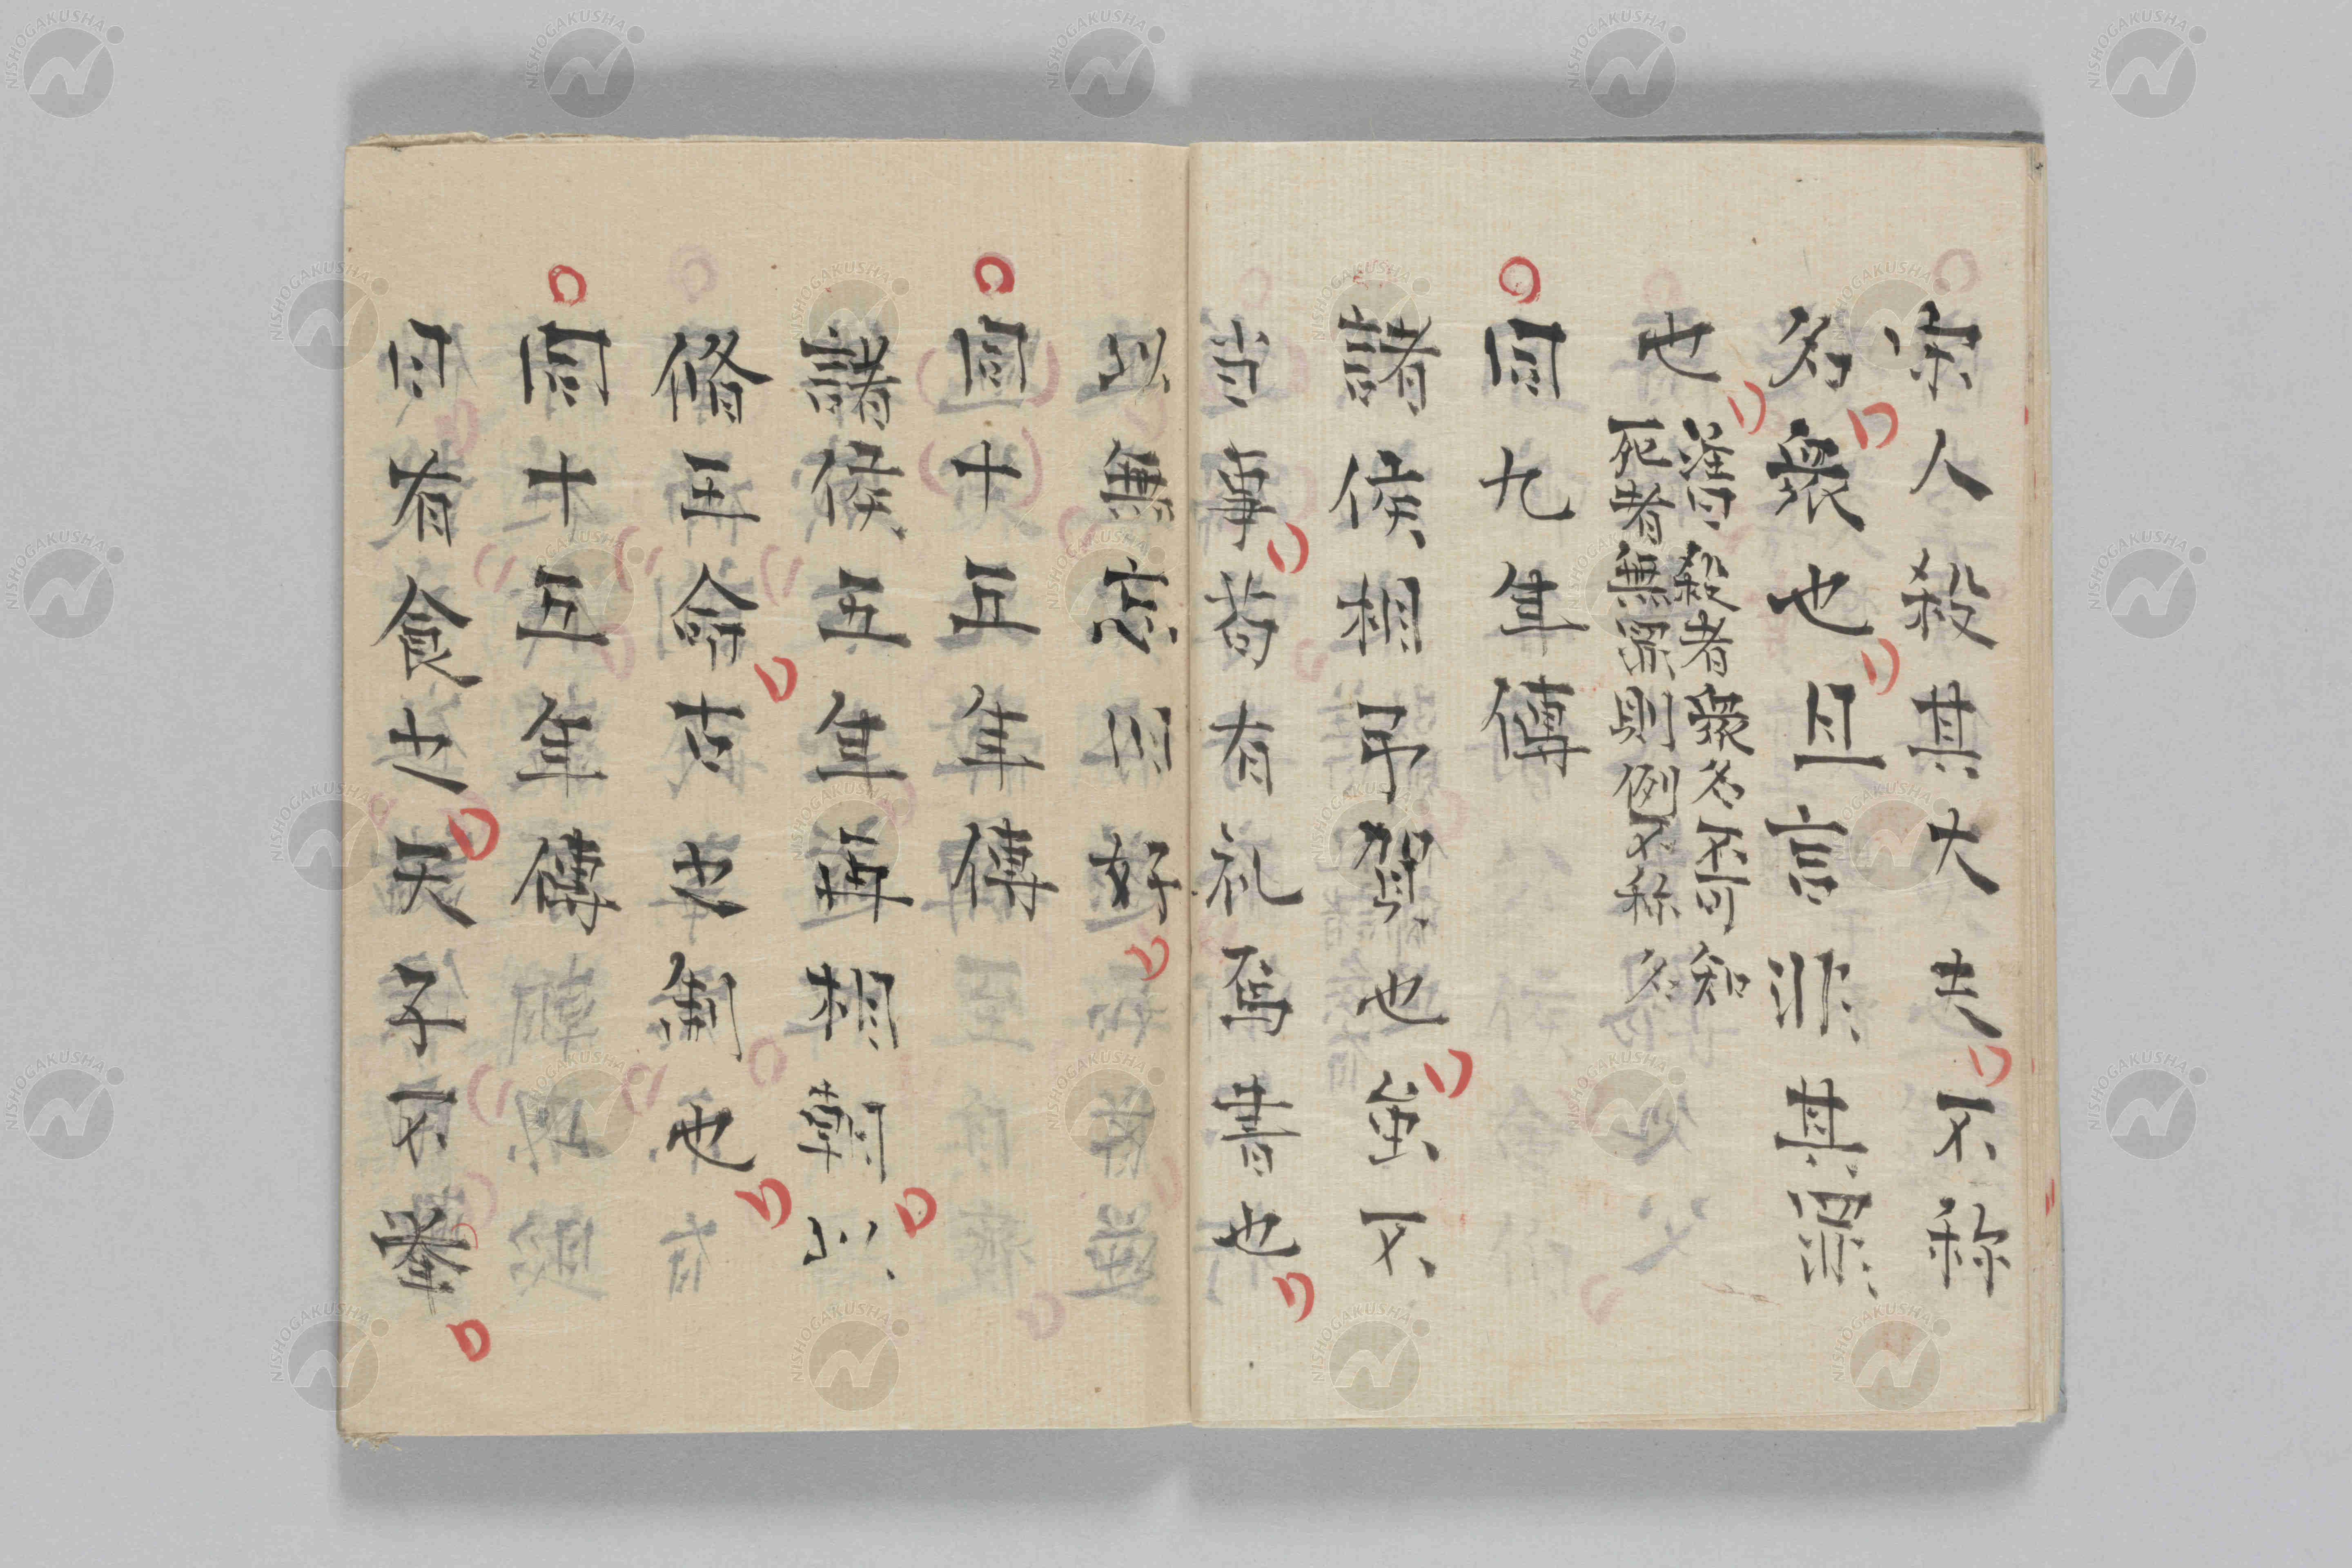 宋人殺其大夫不称
名衆也且言非其罪
也
注曰殺者衆名不可知
死者無罪則例不称名
同九年傳
諸侯相弔賀也虽不
当事苟有礼焉書也
以無忘旧好
同十五年傳
諸侯五年再相朝以
脩王命古之制也
同十五年傳
日有食之天子不挙
NISHOGAKUSHA